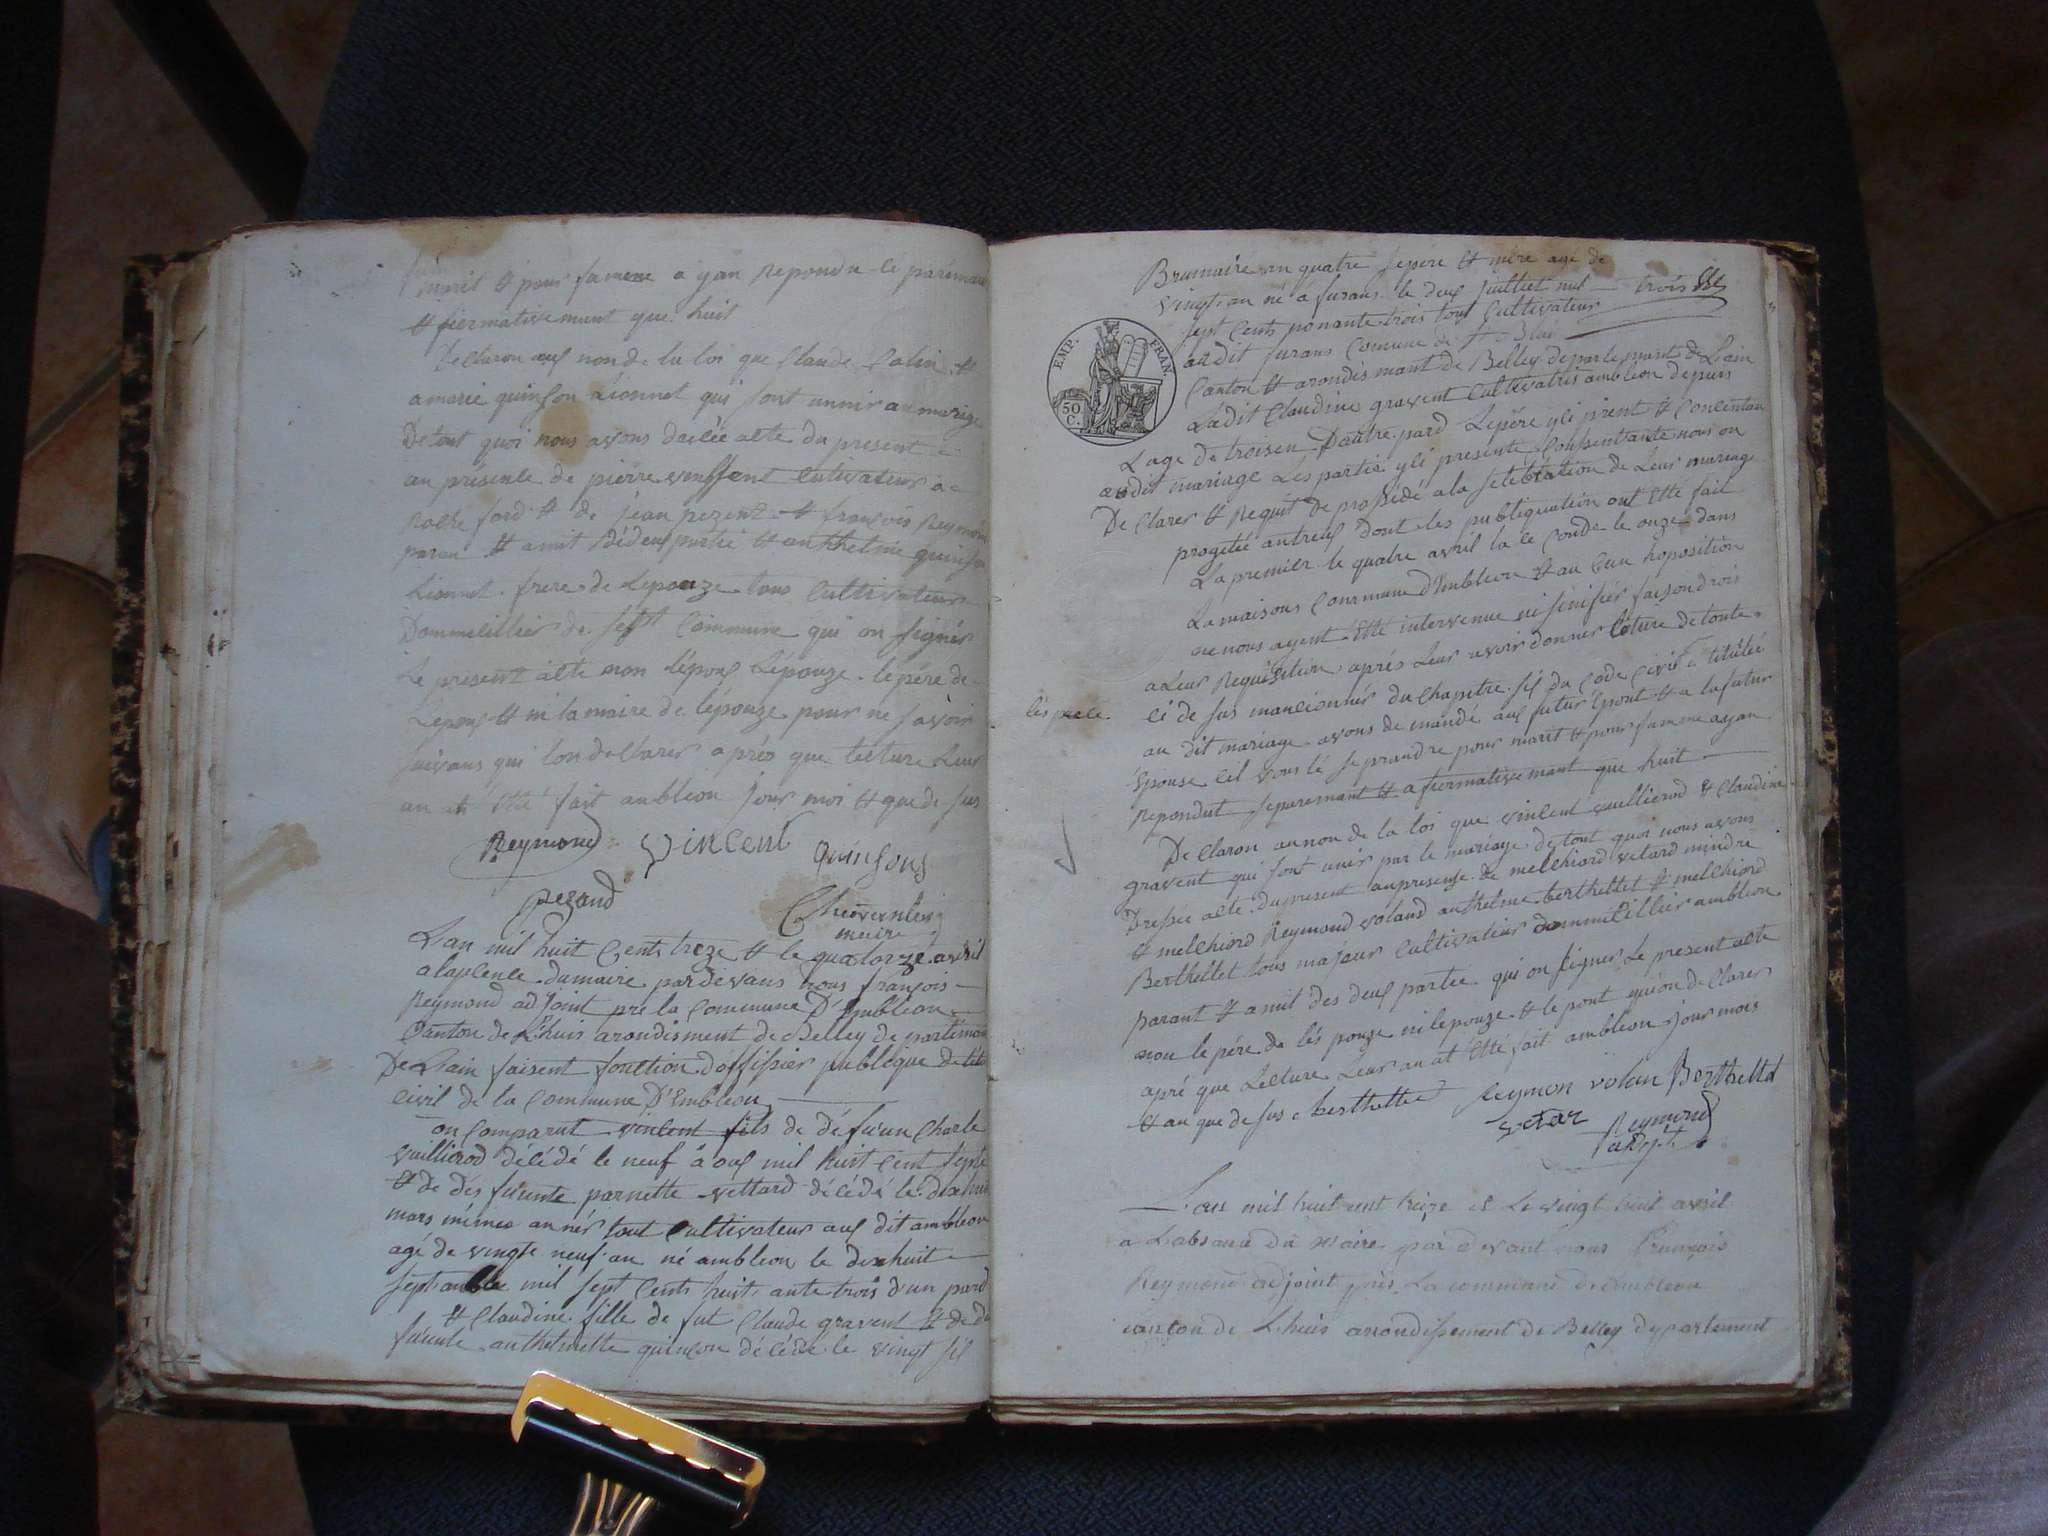 marit & pour famme a yan Repondu le parémant
& fiermativemant que huit
De claron auf non de la loi que Claude Colin &
amerie quinson Lionnet qui sont unnir au marige
De tout quoi nous avons daclée alte du present
an présence de pierre vinssent Cultivateur a
Roche ford & de jean pezent & françois Reymon
paran & amit Dédeux partié & anthelme quinson
Lionnet frere de Lepouze tous Cultivateur
Dommeillier de sest Commune qui on signér
Le present alte non lépouf Lépouze le pére de
Lepouf & ni la maire de lépouze pour ne savoir
suivans qui lon declarer aprés que lecture Leur
an at été fait anbléon jour moi & que de sus
Reymond Vincent quinsons
pezand Chiovenlin
maire
L'an mil huit Cents treze & le quatorze avril
alapcence dumaire pardevans nous françois
Reymond adjoint pre la Commune D'Embléon
Canton de L'huis arondisment de Belley departémant
De L'ain faisent fonction doffisier publique De l'éta
civil de la Commune D'Embléon
on Comparut vincent fils de défuun Charle
vuillierod décédé le neuf a ouf mil huit Cent sept
& de désfuunte parnette vettard décédé le dixhuit
mars mémes annér tout Cultivateur auf dit ambléon
agé de vingte neuf an né ambléon le dixhuit
septamble mil sept Cents huit ante trois d'un pard
& Claudine fille de fut Claude gravent & de dé
fuunte anthelmette quinson décédé le vingt sis
Brumaire an quatre sepére & mére agé de
vingt an né a surans le deuf juilliet mil trois
sept Cents nonante trois tous Cultivateur
au dit surans Comune de St Blai
Canton & arondismant de Belley departemant de L'ain
EMP. FRAN.
50 C.
Ladit Claudine gravent Cultivatris ambléon depuis
L'age de troisen Dautre pard Lepére yci pirent & Concentan
audit mariage Les partie yci presente Consentante nous on
De Clarer & Requit de prossédé a la selébration de Leur mariage
progetée antreuf dont les publiquation ont Etté fait
La premier le quatre avril la se Conde le onze dans
La maisons Commune d'Embléon & au Cun hoposition
ne nous ayent Etté intervenue ni sinifiér faisondrois
aLeur Requisition aprés Leur avoir donner Léture de toute
lés piece
cé de sus mancionnér du Chapitre sis du Code Civil intitulée
au dit mariage avons de mandé auf futur Epout & a la futur
Epouse cil vous lé se prandre pour marit & pour famme ayan
Repondut separemant & afiermativemant que huit
De Claron aunon de la loi que vincent vuillierod & Claudine
gravent qui sont unir par le mariage de tout quoi nous avons
Dressée alte du present anpresense de melchiord vetard mindre
& melchiord Reymond voland anthelme berthellet & melchiord
Berthellet tous majeur Cultivateur dommicillier ambléon
parant & amit des deuf partée qui on signer Le present alte
non le pére de lés pouze ni lepouze & le pont quion de Clarer
apré que Lecture Leur an at Etté fait ambléon jour mois
& an que de sus berthellet Reymon volan Berthellet
vetar Reymond
adjoint
L'an mil huit cent treize et le vingt huit avril
a L'absance du maire par devant nous François
Reymond adjoint pris La commune de ambléon
canton de L'huis arrondissement de Belley departement